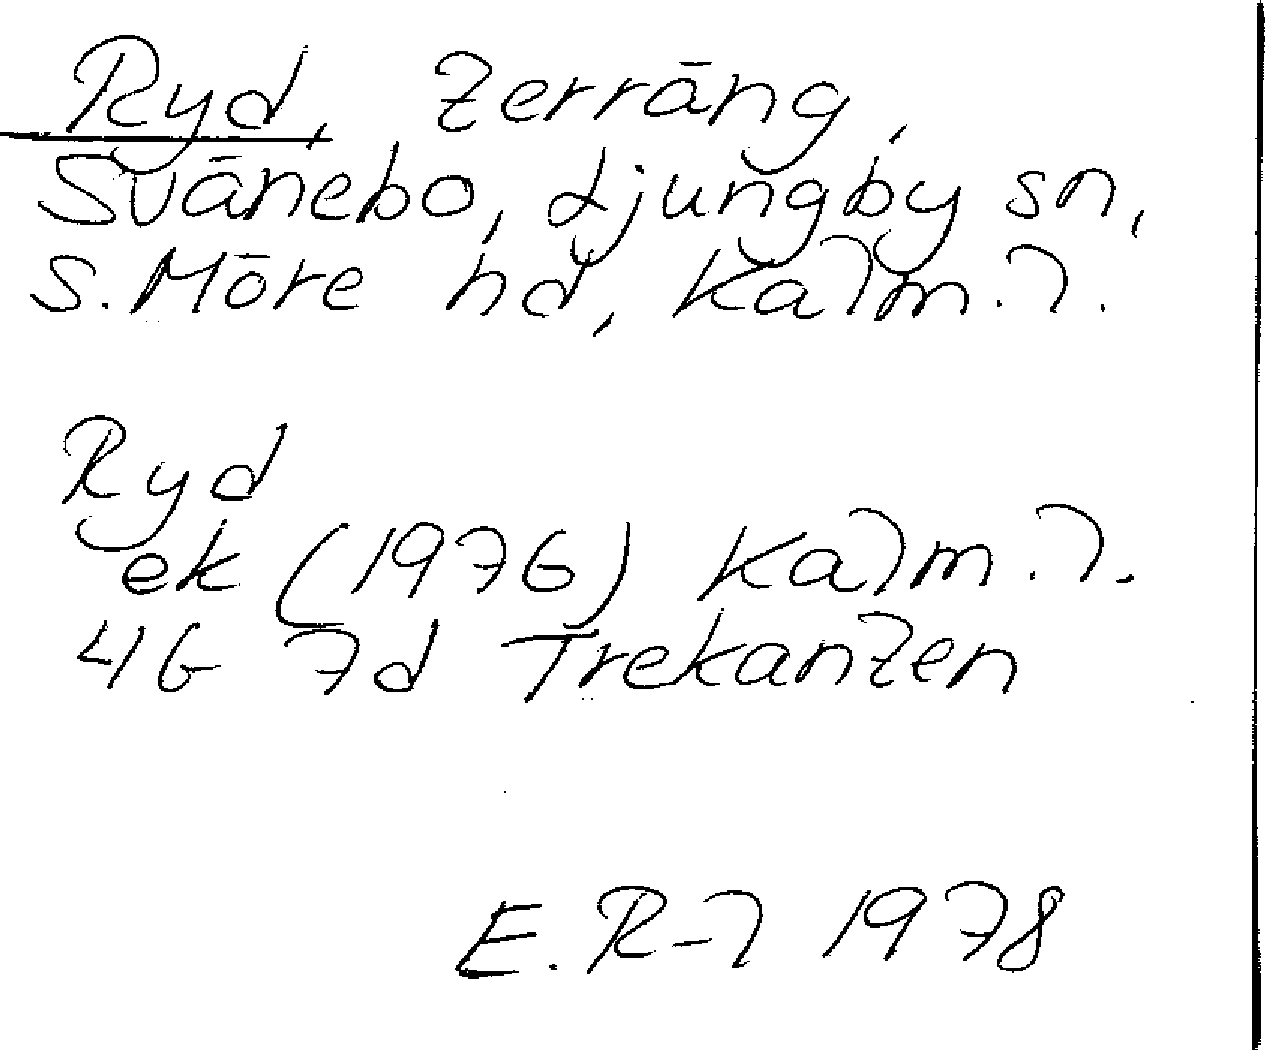 Ryd, terräng,
Svänebo, Ljungby sn,
S. Möre hd, Kalm. l.
Ryd
ek (1976) Kalm. l.
4G 7d Trekanten
E. R-l 1978